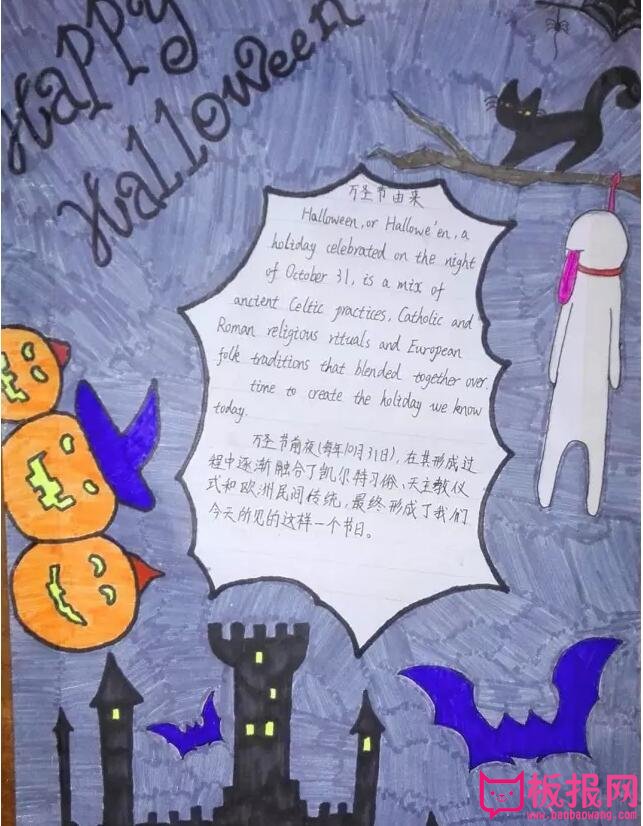 Happy
Halloween
万圣节由来
Halloween, or Hallowe'en, a
holiday celebrated on the night
of October 31, is a mix of
ancient Celtic practices, Catholic and
Roman religious rituals and European
folk traditions that blended together over.
time to create the holiday we know
today.
万圣节前夜(每年10月31日), 在其形成过
程中逐渐融合了凯尔特习俗、天主教仪
式和欧洲民间传统, 最终形成了我们
今天所见的这样一个节日。
板报网
www.banbaowang.com